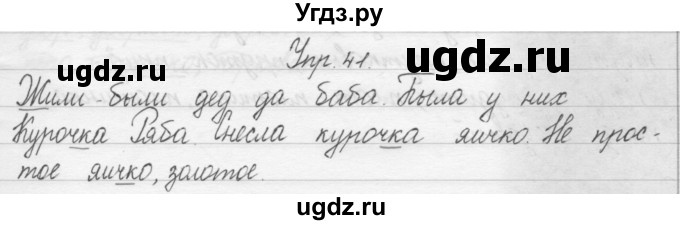 Угдз.ру
Упр. 41.
ugdz.ru ugdz.ru
Жили-были дед да баба. Была у них
Курочка Ряба. Снесла курочка яичко. Не прос-
ugdz.ru ugdz.ru
тое яичко, золотое.
ugdz.ru